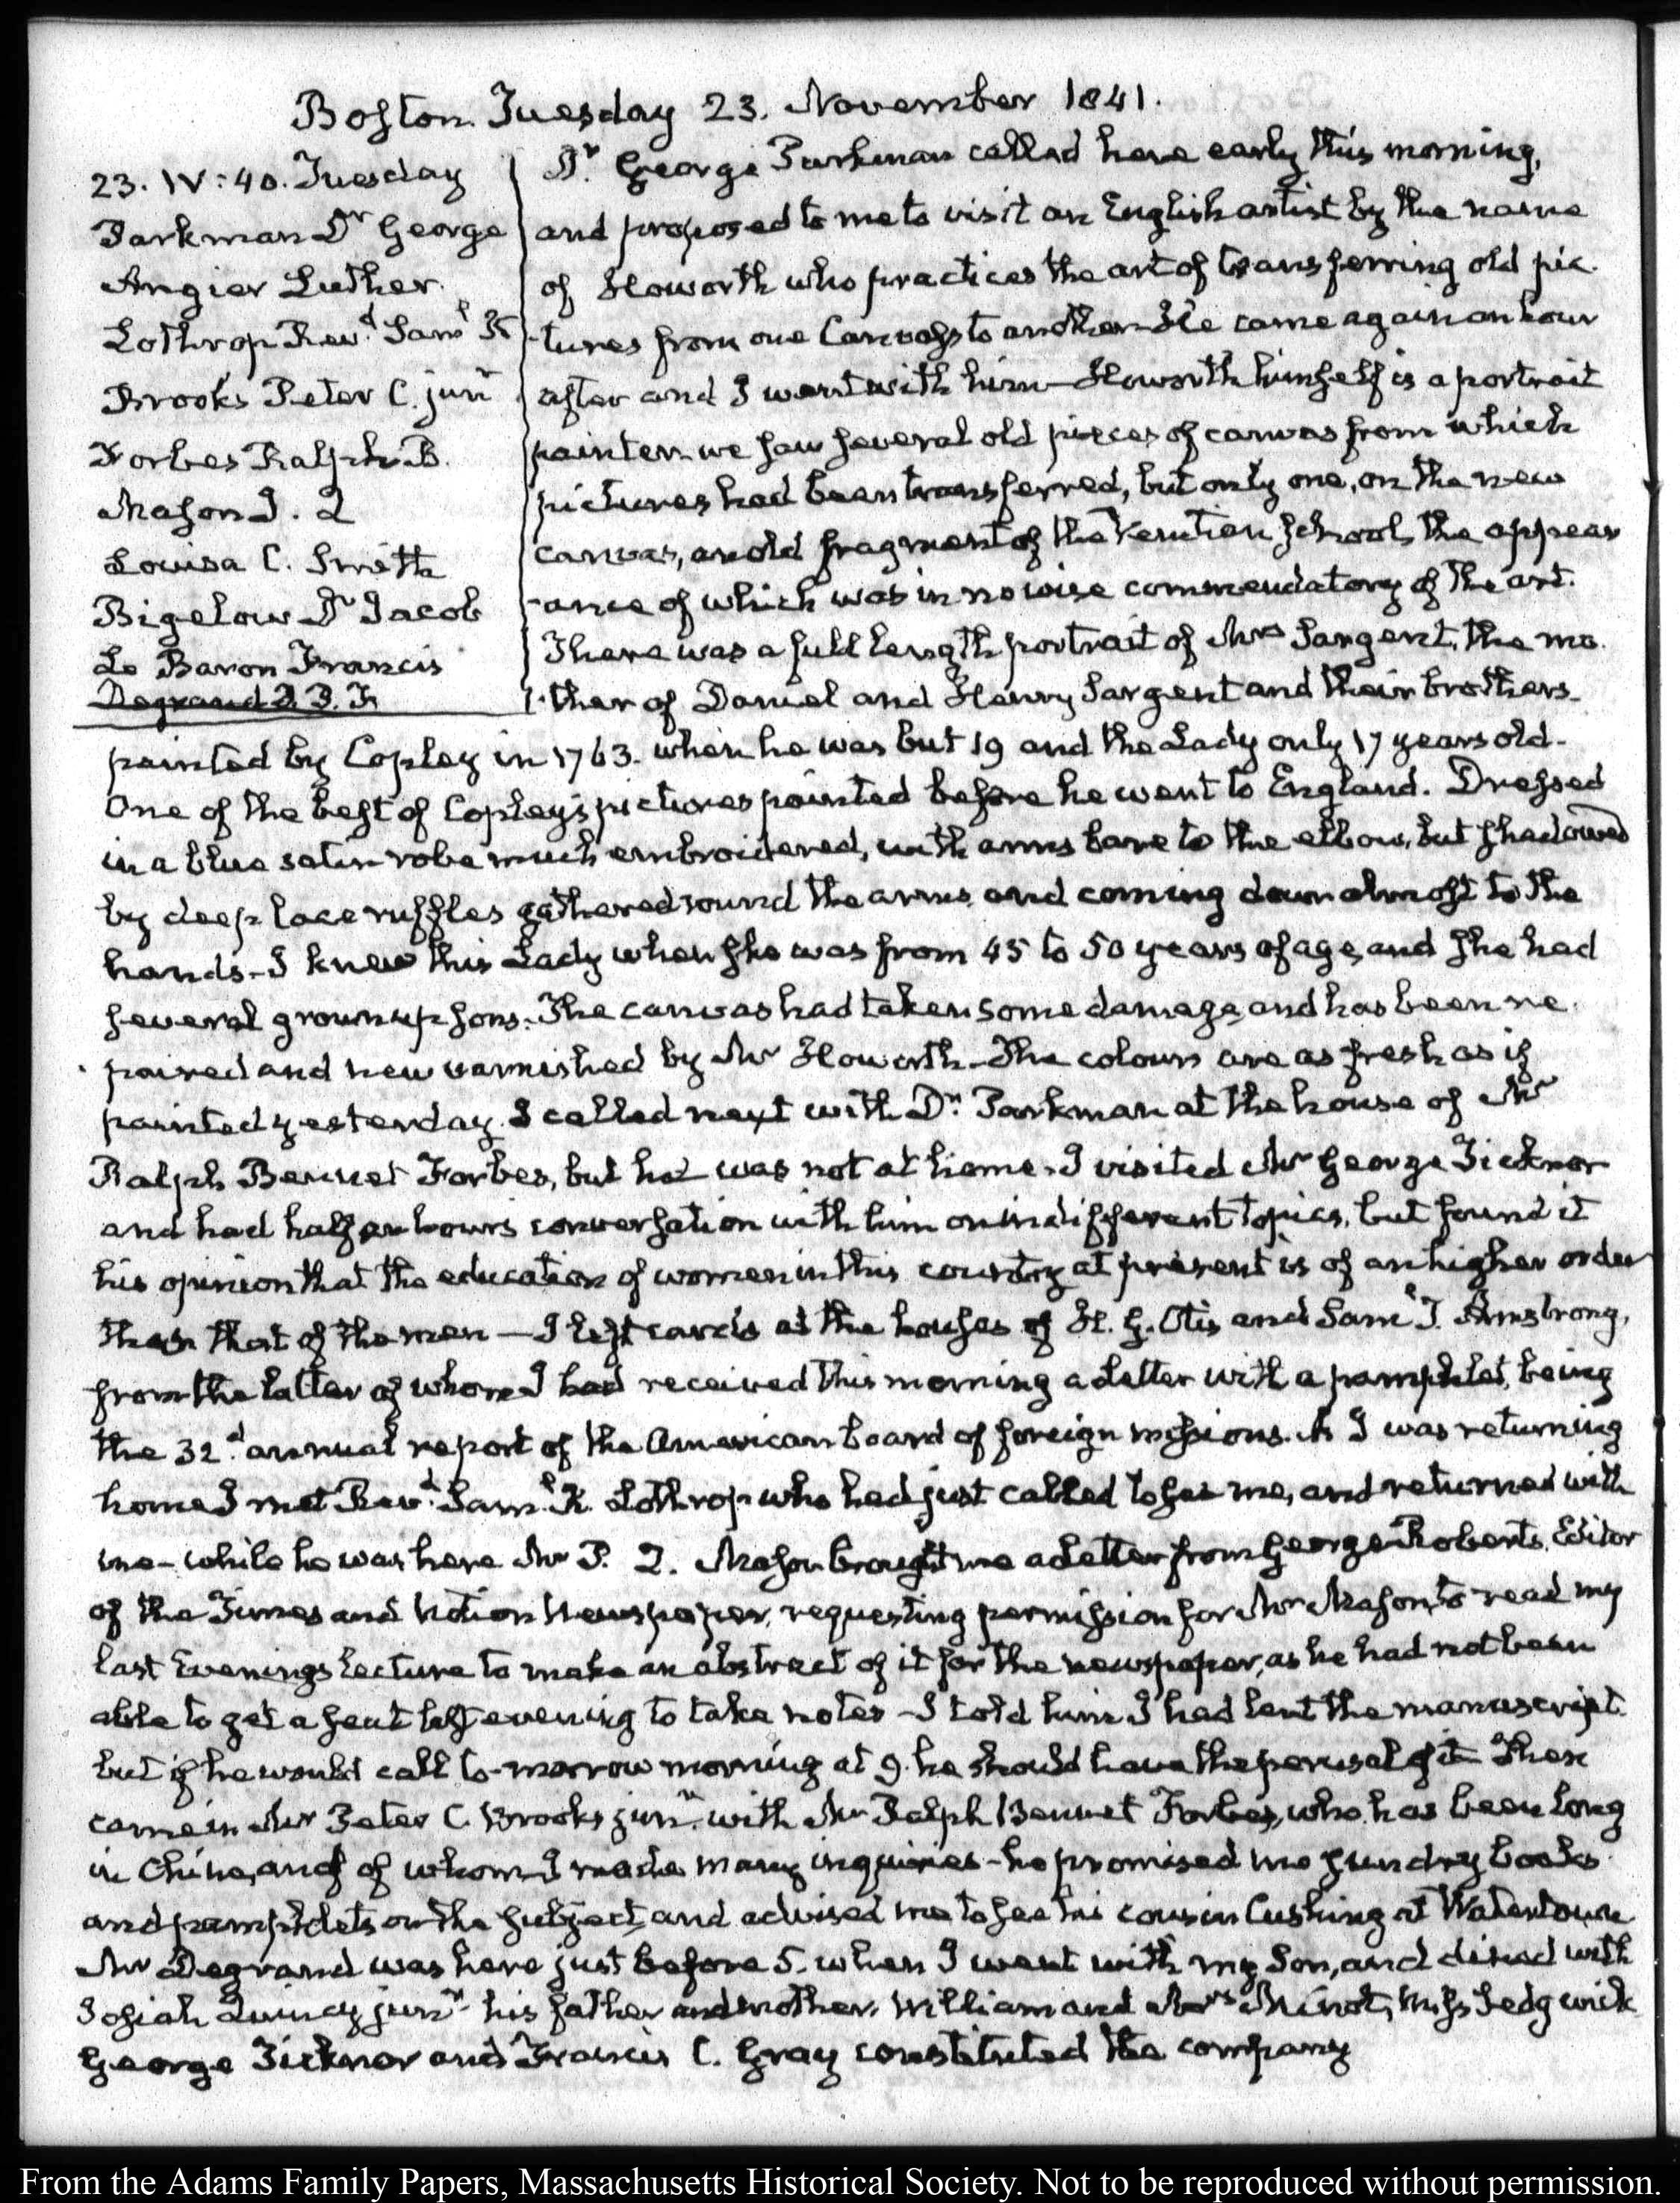 Boston Tuesday 23. November 1841.
23. IV:40. Tuesday
Parkman Dr George
Angier Luther.
Lothrop Revd. Saml K
Brooks Peter C. junr
Forbes Ralph B.
Mason J. 2
Louisa C. Smith
Bigelow Dr Jacob
Le Baron Francis
Degrand P. P. F.
Dr. George Parkman called here early this morning,
and proposed to me to visit an English artist by the name
of Howorth who practices the art of transferring old pic-
tures from one Canvass to another—He came again an hour
after and I went with him—Howorth himself is a portrait
painter—we saw several old pieces of canvas from which
pictures had been transferred, but only one, on the new
canvas, an old fragment of the Venetian school, the appear
-ance of which was in no wise commendatory of the art.
There was a full length portrait of Mrs Sargent, the mo-
-ther of Daniel and Henry Sargent and their brothers—
painted by Copley in 1763. when he was but 19 and the Lady only 17 years old—
One of the best of Copley's pictures painted before he went to England. Dressed
in a blue satin robe much embroidered, with arms bare to the elbow, but shadowed
by deep lace ruffles gathered round the arms and coming down almost to the
hands—I knew this Lady when she was from 45 to 50 years of age, and she had
several grown up sons. The canvas had taken some damage, and has been re-
paired and new varnished by Mr Howorth—The colours are as fresh as if
painted yesterday. I called next with Dr. Parkman at the house of Mr
Ralph Bennet Forbes, but he was not at home. I visited Mr George Ticknor
and had half an hours conversation with him on indifferent topics, but found it
his opinion that the education of women in this country at present is of an higher order
than that of the men—I left cards at the houses of H. G. Otis and Saml T. Armstrong,
from the latter of whom I had received this morning a letter with a pamphlet, being
the 32d. annual report of the American board of foreign missions. As I was returning
home I met Revd. Saml. K. Lothrop who had just called to see me, and returned with
me—while he was here Mr P. 2. Mason brought me a letter from George Roberts, Editor
of the Times and Notion Newspaper, requesting permission for Mr Mason, to read my
last Evenings Lecture to make an abstract of it for the newspaper, as he had not been
able to get a seat last evening to take notes—I told him I had lent the manuscript
but if he would call to-morrow morning at 9. he should have the perusal of it. Then
came in Mr Peter C. Brooks junr. with Mr Ralph Bennet Forbes, who has been long
in China, and of whom I made many inquiries—he promised me sundry books
and pamphlets on the subject, and advised me to see his cousin Cushing at Watertown
Mr Degrand was here just before 5. when I went with my Son, and dined with
Josiah Quincy junr— his father and mother, William and Mrs Minot, Miss Sedgwick
George Ticknor and Francis C. Gray constituted the company
From the Adams Family Papers, Massachusetts Historical Society. Not to be reproduced without permission.